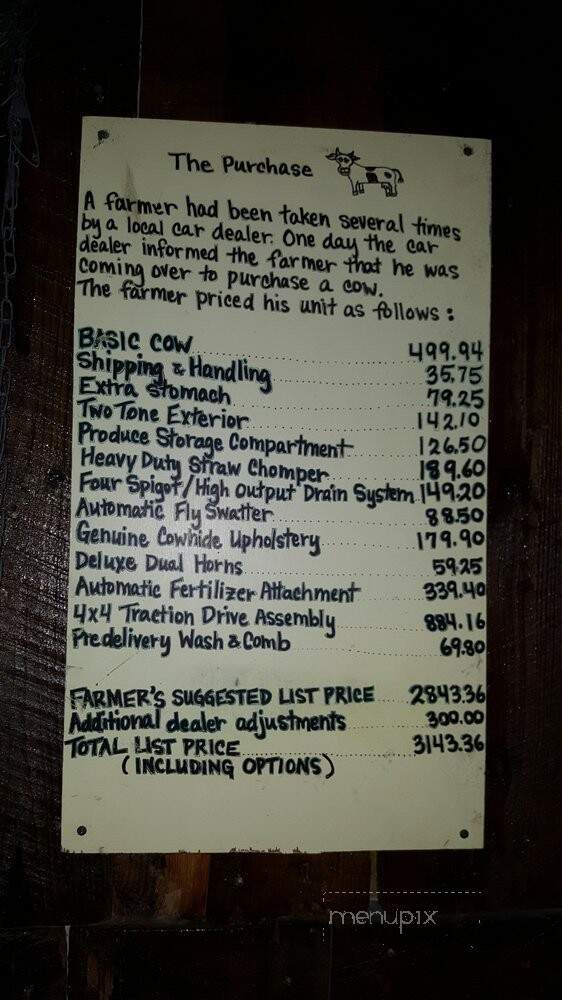 The Purchase
A farmer had been taken several times
by a local car dealer. One day the car
dealer informed the farmer that he was
coming over to purchase a cow.
The farmer priced his unit as follows:
BASIC COW 499.94
Shipping & Handling 35.75
Extra Stomach 79.25
Two Tone Exterior 142.10
Produce Storage Compartment 126.50
Heavy Duty Straw Chomper 189.60
Four Spigot/High Output Drain System 149.20
Automatic Fly Swatter 88.50
Genuine Cowhide Upholstery 179.90
Deluxe Dual Horns 59.25
Automatic Fertilizer Attachment 339.40
4x4 Traction Drive Assembly 884.16
Predelivery Wash & Comb 69.80
FARMER'S SUGGESTED LIST PRICE 2843.36
Additional dealer adjustments 300.00
TOTAL LIST PRICE 3143.36
(INCLUDING OPTIONS)
menupix